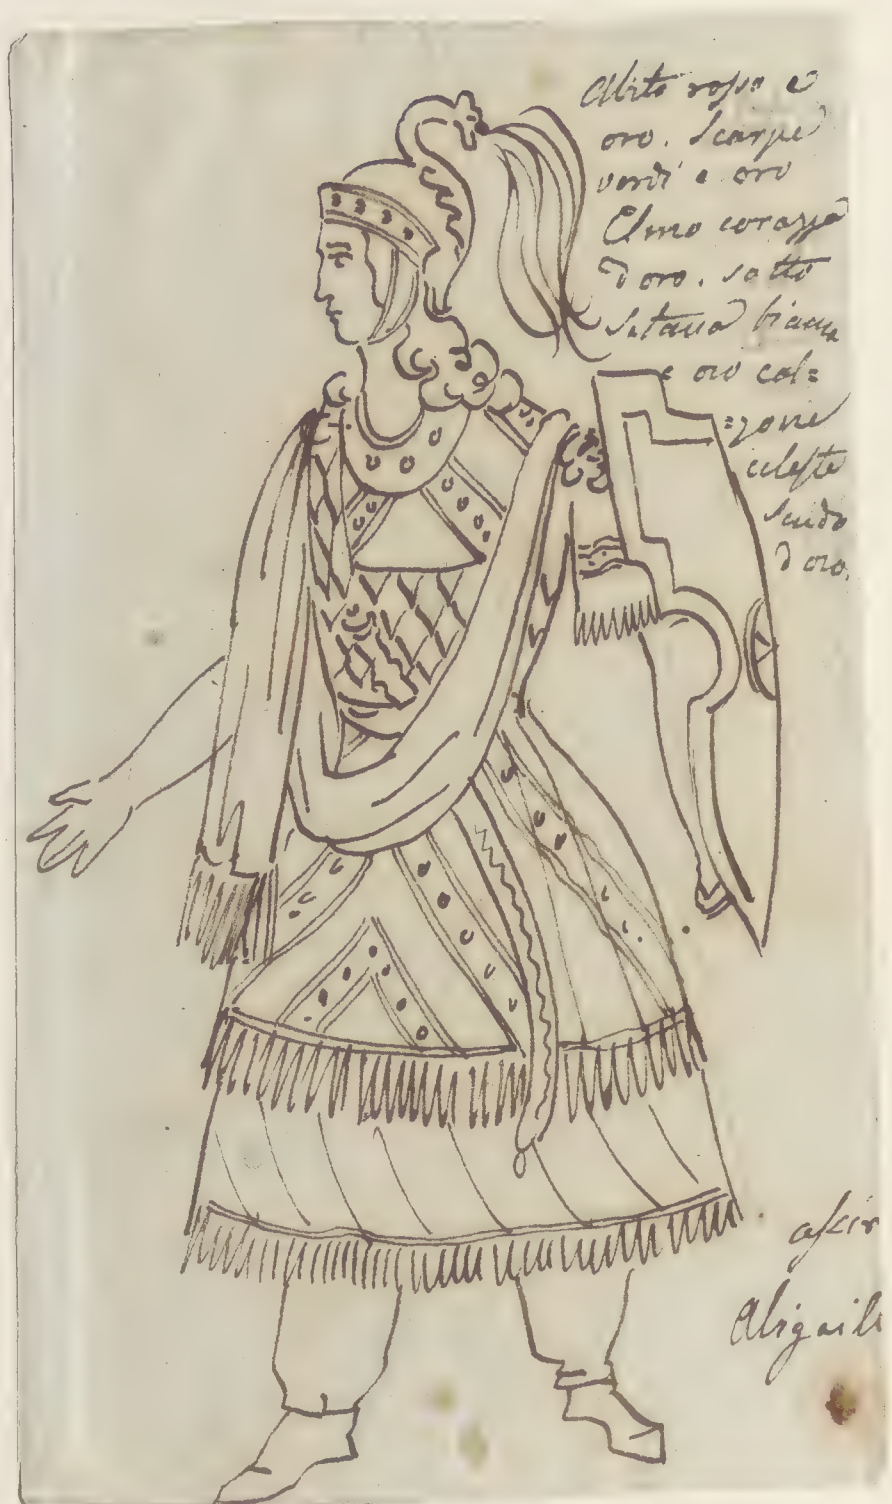 Abito rosso e
oro. Scarpe
verdi e oro
Elmo corazza
d'oro. sotto
Sotana bianca
e oro cal=
=zone
celeste
scudo
d'oro.
Abigaile